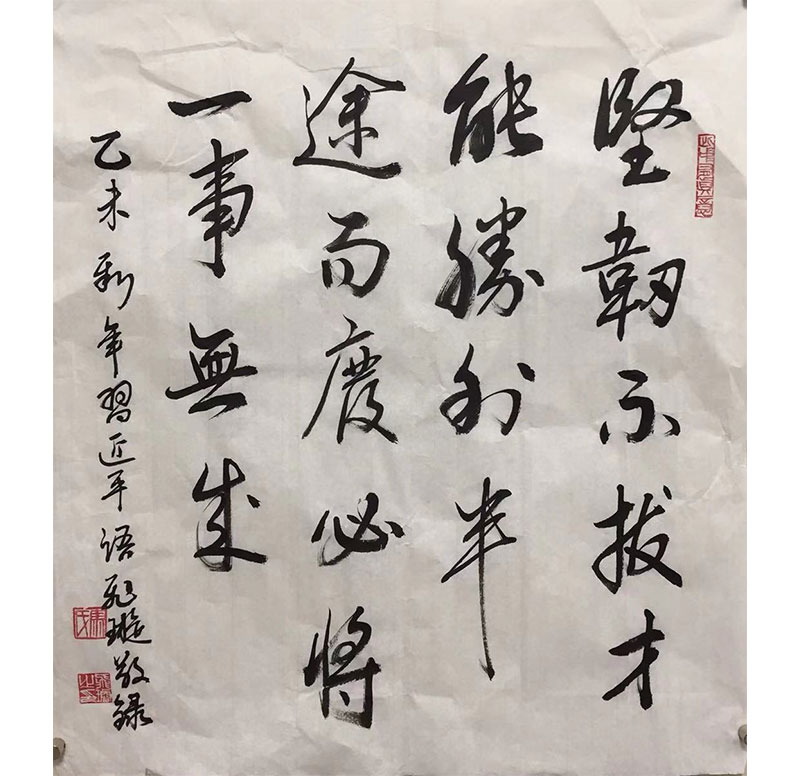 堅韌不拔才
能勝利半
途而廢必將
一事無成
乙未新年習近平語飛璇敬錄